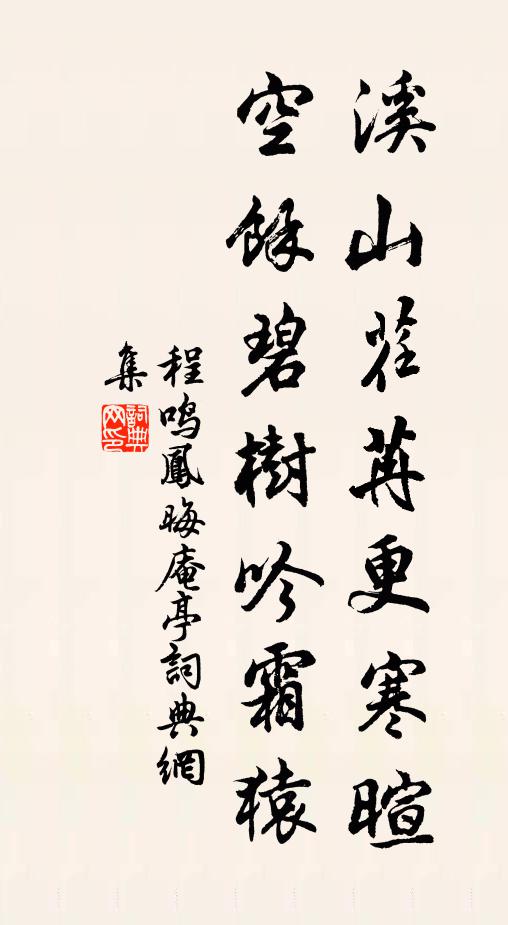 溪山荏苒更寒暄
空餘碧樹吟霜猿
程鳴鳳晦庵亭詞典網
集
詞典网印